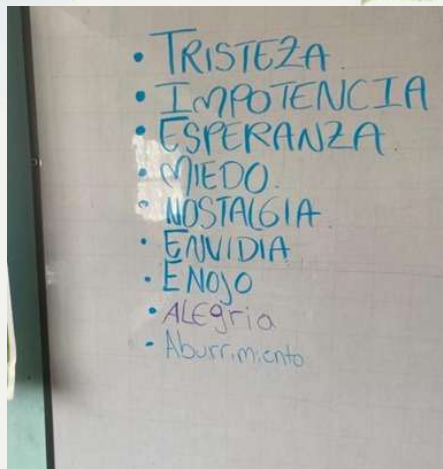 • TRISTEZA.
• IMPOTENCIA
• ESPERANZA.
• MIEDO.
• NOSTALGIA
• ENVIDIA
• ENOJO
• ALEgria
• Aburrimiento